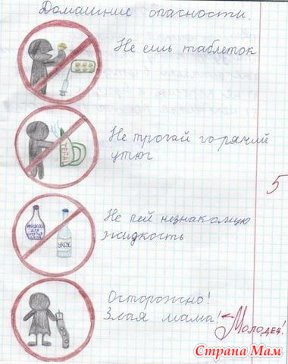 Домашние опасности.
Не ешь таблеток
Не трогай горячий
утюг
Не пей незнакомую
жидкость
5
Осторожно!
Злая мама!
Молодец!
Страна Мам